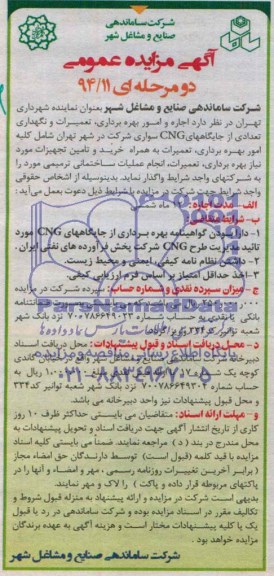 شرکت ساماندهی
صنایع و مشاغل شهر
آگهی مزایده عمومی
دو مرحله ای ۹۴/۱۱
شرکت ساماندهی صنایع و مشاغل شهر بعنوان نماینده شهرداری
تهران در نظر دارد اجاره و امور بهره برداری، تعمیرات و نگهداری
تعدادی از جایگاههای CNG سواری شرکت در شهر تهران شامل کلیه
امور بهره برداری، تعمیرات به همراه خرید و تامین تجهیزات مورد
نیاز بهره برداری، تعمیرات، انجام عملیات ساختمانی ترمیمی مورد را
به شرکتهای واجد شرایط واگذار نماید. بدینوسیله از اشخاص حقوقی
واجد شرایط جهت شرکت در مزایده با شرایط ذیل دعوت بعمل می آید:
الف - مدت اجاره: ماه شمسی
ب - شرایط متقاضی:
۱- دارا بودن گواهینامه بهره برداری از جایگاههای CNG مورد
تائید مدیریت طرح CNG شرکت پخش فرآورده های نفتی ایران.
۲- داشتن نظام نامه کیفی، ایمنی و محیط زیست.
۳- اخذ حداقل امتیاز بر اساس فرم ارزیابی کیفی.
ج - میزان سپرده نقدی و شماره حساب: سپرده شرکت در مزایده
بانکی یا نقدی به شماره حساب ۷۰۰۷۸۶۶۴۹۰۴۳ نزد بانک شهر
شعبه توانیر کد ۳۳۴
پارس نماد داده ها
ParsNamadData
پایگاه اطلاع رسانی مناقصه و مزایده
۰۲۱-۸۸۳۴۹۶۷۰-۵
د - محل دریافت اسناد و قبول پیشنهادات: محل دریافت اسناد
حساب شماره ۷۰۰۷۸۶۶۴۹۳۰۲ نزد بانک شهر شعبه توانیر کد ۳۳۴
و محل قبول پیشنهادات نیز واحد دبیرخانه می باشد.
و - مهلت ارائه اسناد: متقاضیان می بایستی حداکثر ظرف ۱۰ روز
کاری از تاریخ انتشار آگهی جهت دریافت اسناد و تحویل پیشنهادات به
محل مندرج در بند (د) مراجعه نمایند. ضمنا می بایستی کلیه اسناد
مزایده با قید کلمه (قبول است) توسط دارندگان حق امضاء مجاز
(برابر آخرین تغییرات روزنامه رسمی، مهر و امضاء و آنها را در
پاکتهای مربوطه قرار داده و پاکت) را لاک و مهر نمایند.
بدیهی است شرکت در مزایده و ارائه پیشنهاد به منزله قبول شروط و
تکالیف مقرر در اسناد مزایده بوده و شرکت ساماندهی در رد یا قبول
یک یا کلیه پیشنهادات مختار است و هزینه آگهی به عهده برندگان
مزایده خواهد بود.
شرکت ساماندهی صنایع و مشاغل شهر